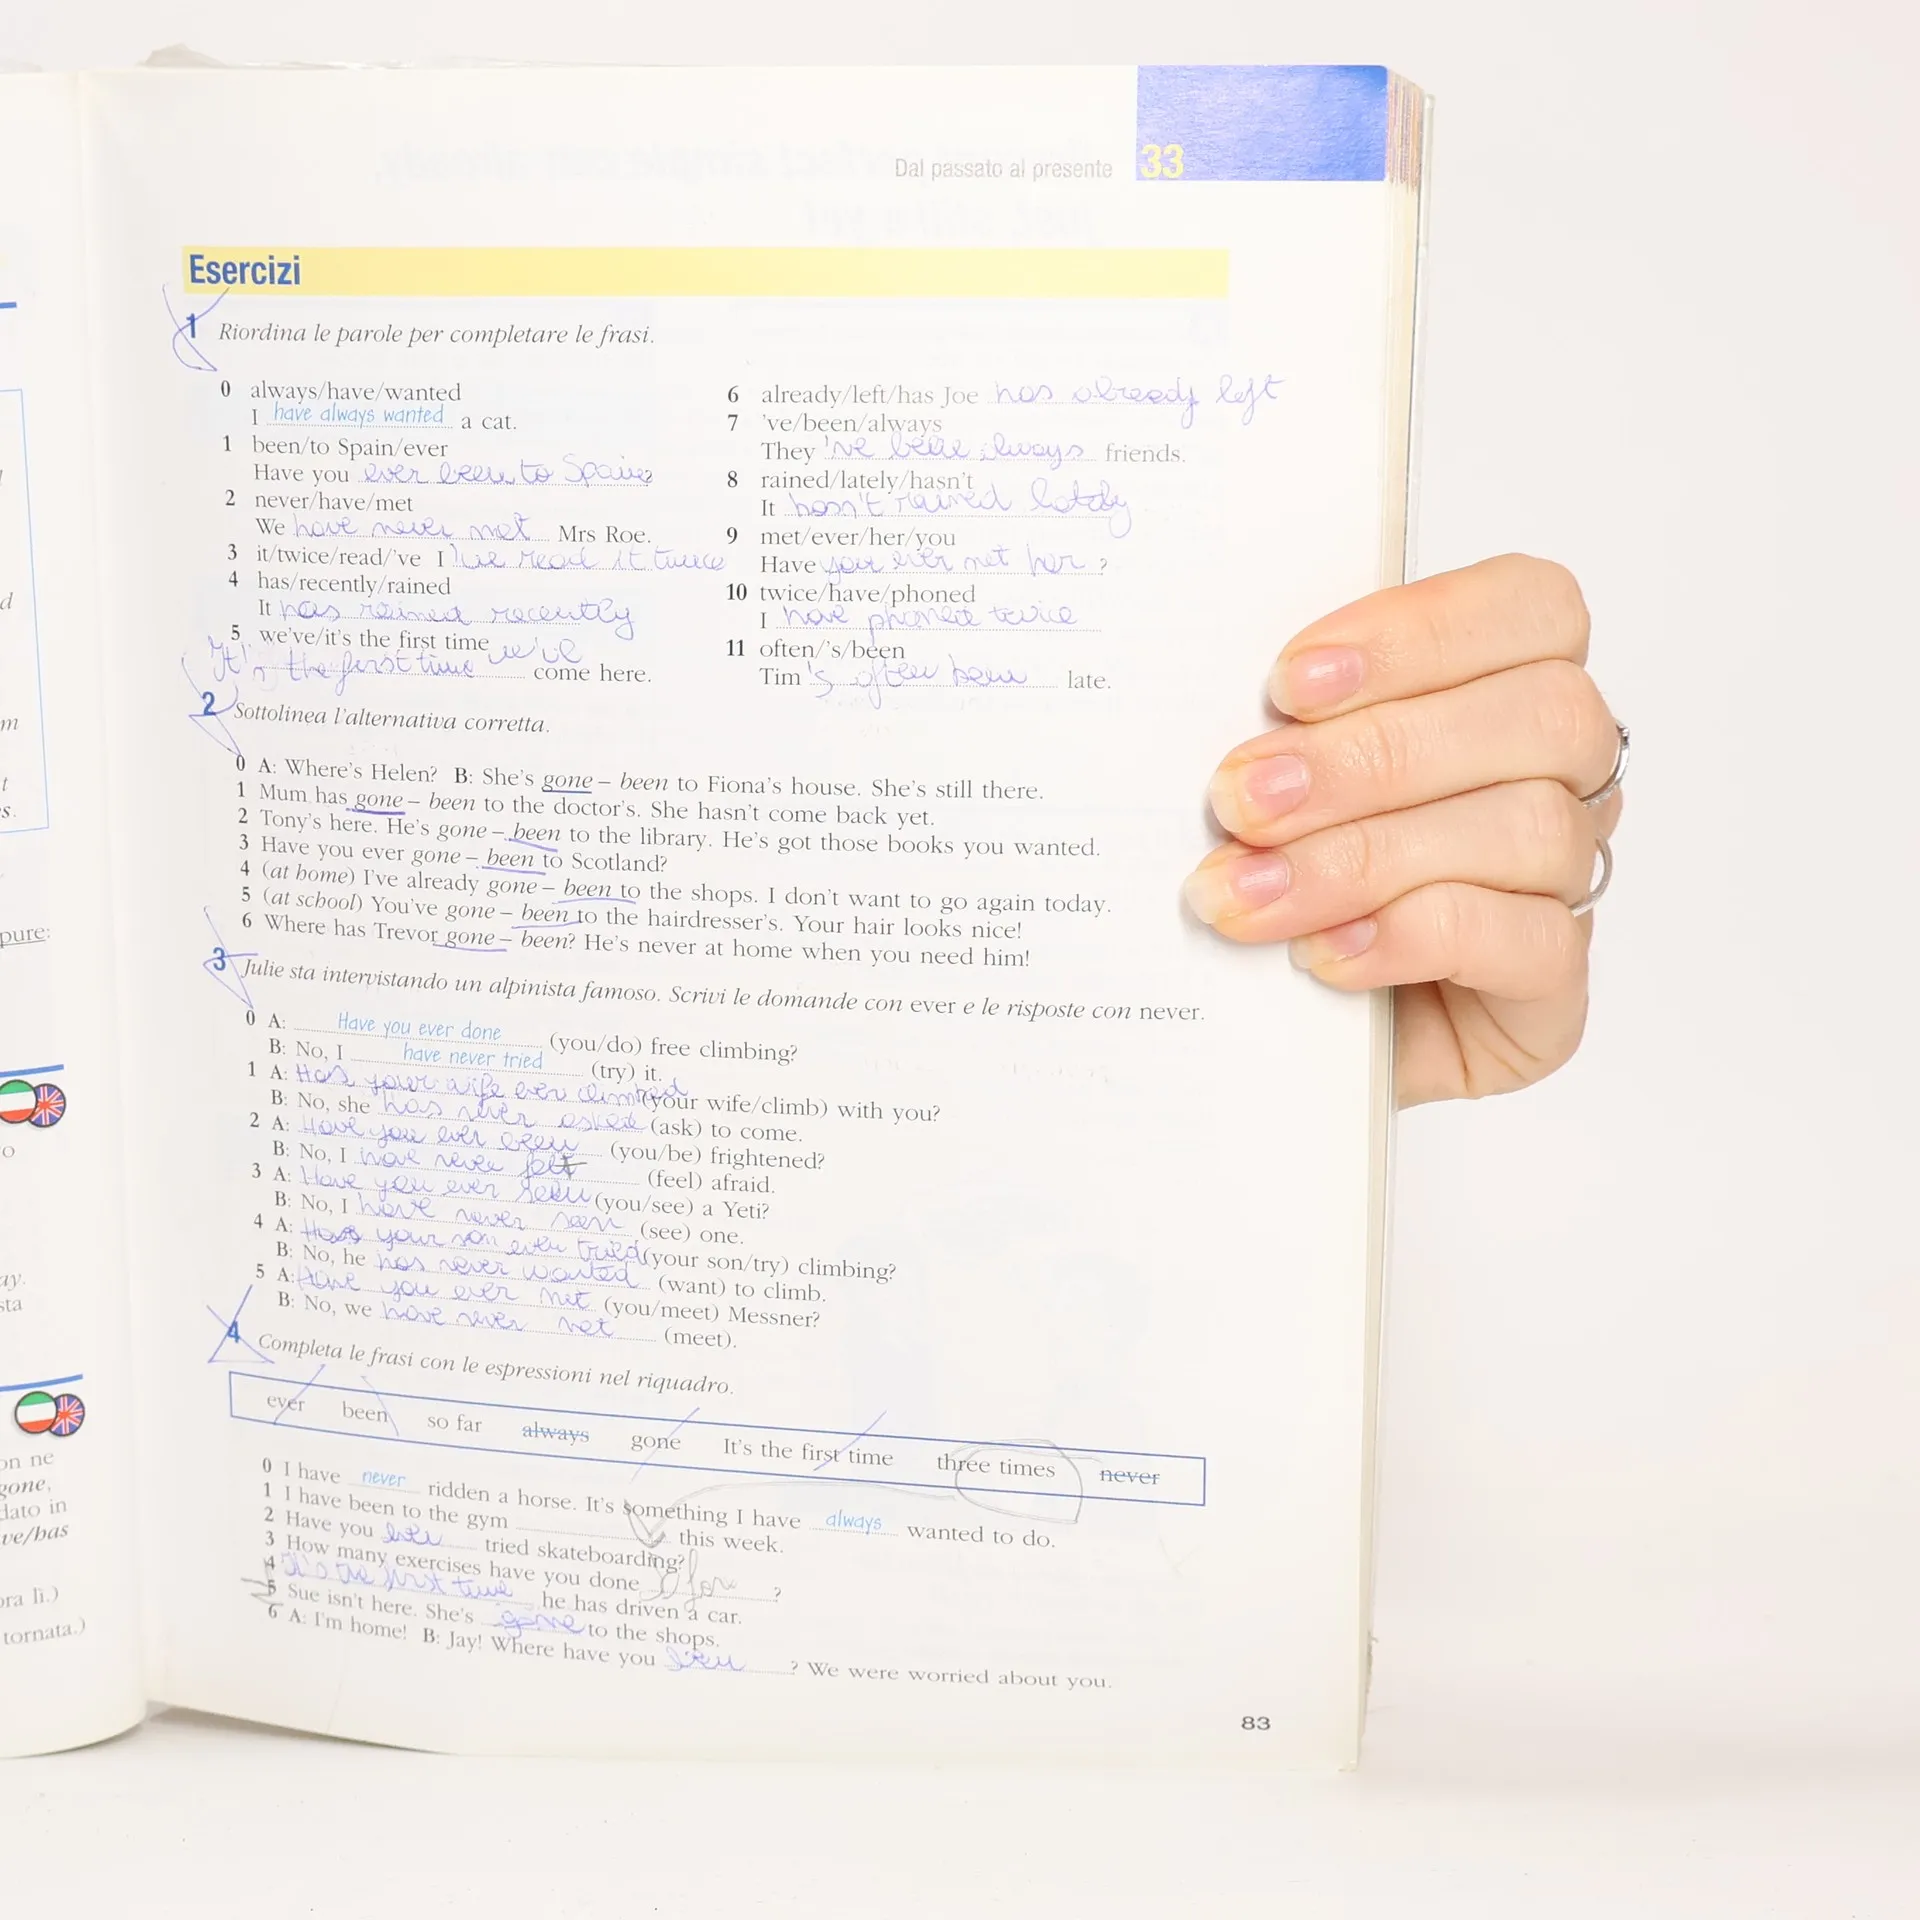 Dal passato al presente 33
Esercizi
1 Riordina le parole per completare le frasi.
0 always/have/wanted
I have always wanted a cat.
1 been/to Spain/ever
Have you ever been to Spain?
2 never/have/met
We have never met Mrs Roe.
3 it/twice/read/'ve I 've read it twice
4 has/recently/rained
It has rained recently
5 we've/it's the first time we've
It's the first time come here.
6 already/left/has Joe has already left
7 've/been/always
They 've been always friends.
8 rained/lately/hasn't
It hasn't rained lately
9 met/ever/her/you
Have you ever met her ?
10 twice/have/phoned
I have phoned twice
11 often/'s/been
Tim 's often been late.
2 Sottolinea l'alternativa corretta.
0 A: Where's Helen? B: She's gone – been to Fiona's house. She's still there.
1 Mum has gone – been to the doctor's. She hasn't come back yet.
2 Tony's here. He's gone – been to the library. He's got those books you wanted.
3 Have you ever gone – been to Scotland?
4 (at home) I've already gone – been to the shops. I don't want to go again today.
5 (at school) You've gone – been to the hairdresser's. Your hair looks nice!
6 Where has Trevor gone – been? He's never at home when you need him!
3 Julie sta intervistando un alpinista famoso. Scrivi le domande con ever e le risposte con never.
0 A: Have you ever done (you/do) free climbing?
B: No, I have never tried (try) it.
1 A: Has your wife ever climbed (your wife/climb) with you?
B: No, she has never asked (ask) to come.
2 A: Have you ever been (you/be) frightened?
B: No, I have never felt (feel) afraid.
3 A: Have you ever seen (you/see) a Yeti?
B: No, I have never seen (see) one.
4 A: Has your son ever tried (your son/try) climbing?
B: No, he has never wanted (want) to climb.
5 A: Have you ever met (you/meet) Messner?
B: No, we have never met (meet).
4 Completa le frasi con le espressioni nel riquadro.
ever been so far always gone It's the first time three times never
0 I have never ridden a horse. It's something I have always wanted to do.
1 I have been to the gym this week.
2 Have you ever tried skateboarding?
3 How many exercises have you done ?
4 It's the first time he has driven a car.
5 Sue isn't here. She's gone to the shops.
6 A: I'm home! B: Jay! Where have you been ? We were worried about you.
83
pure:
ay.
sta
on ne
gone,
dato in
ve/has
ora lì.)
tornata.)